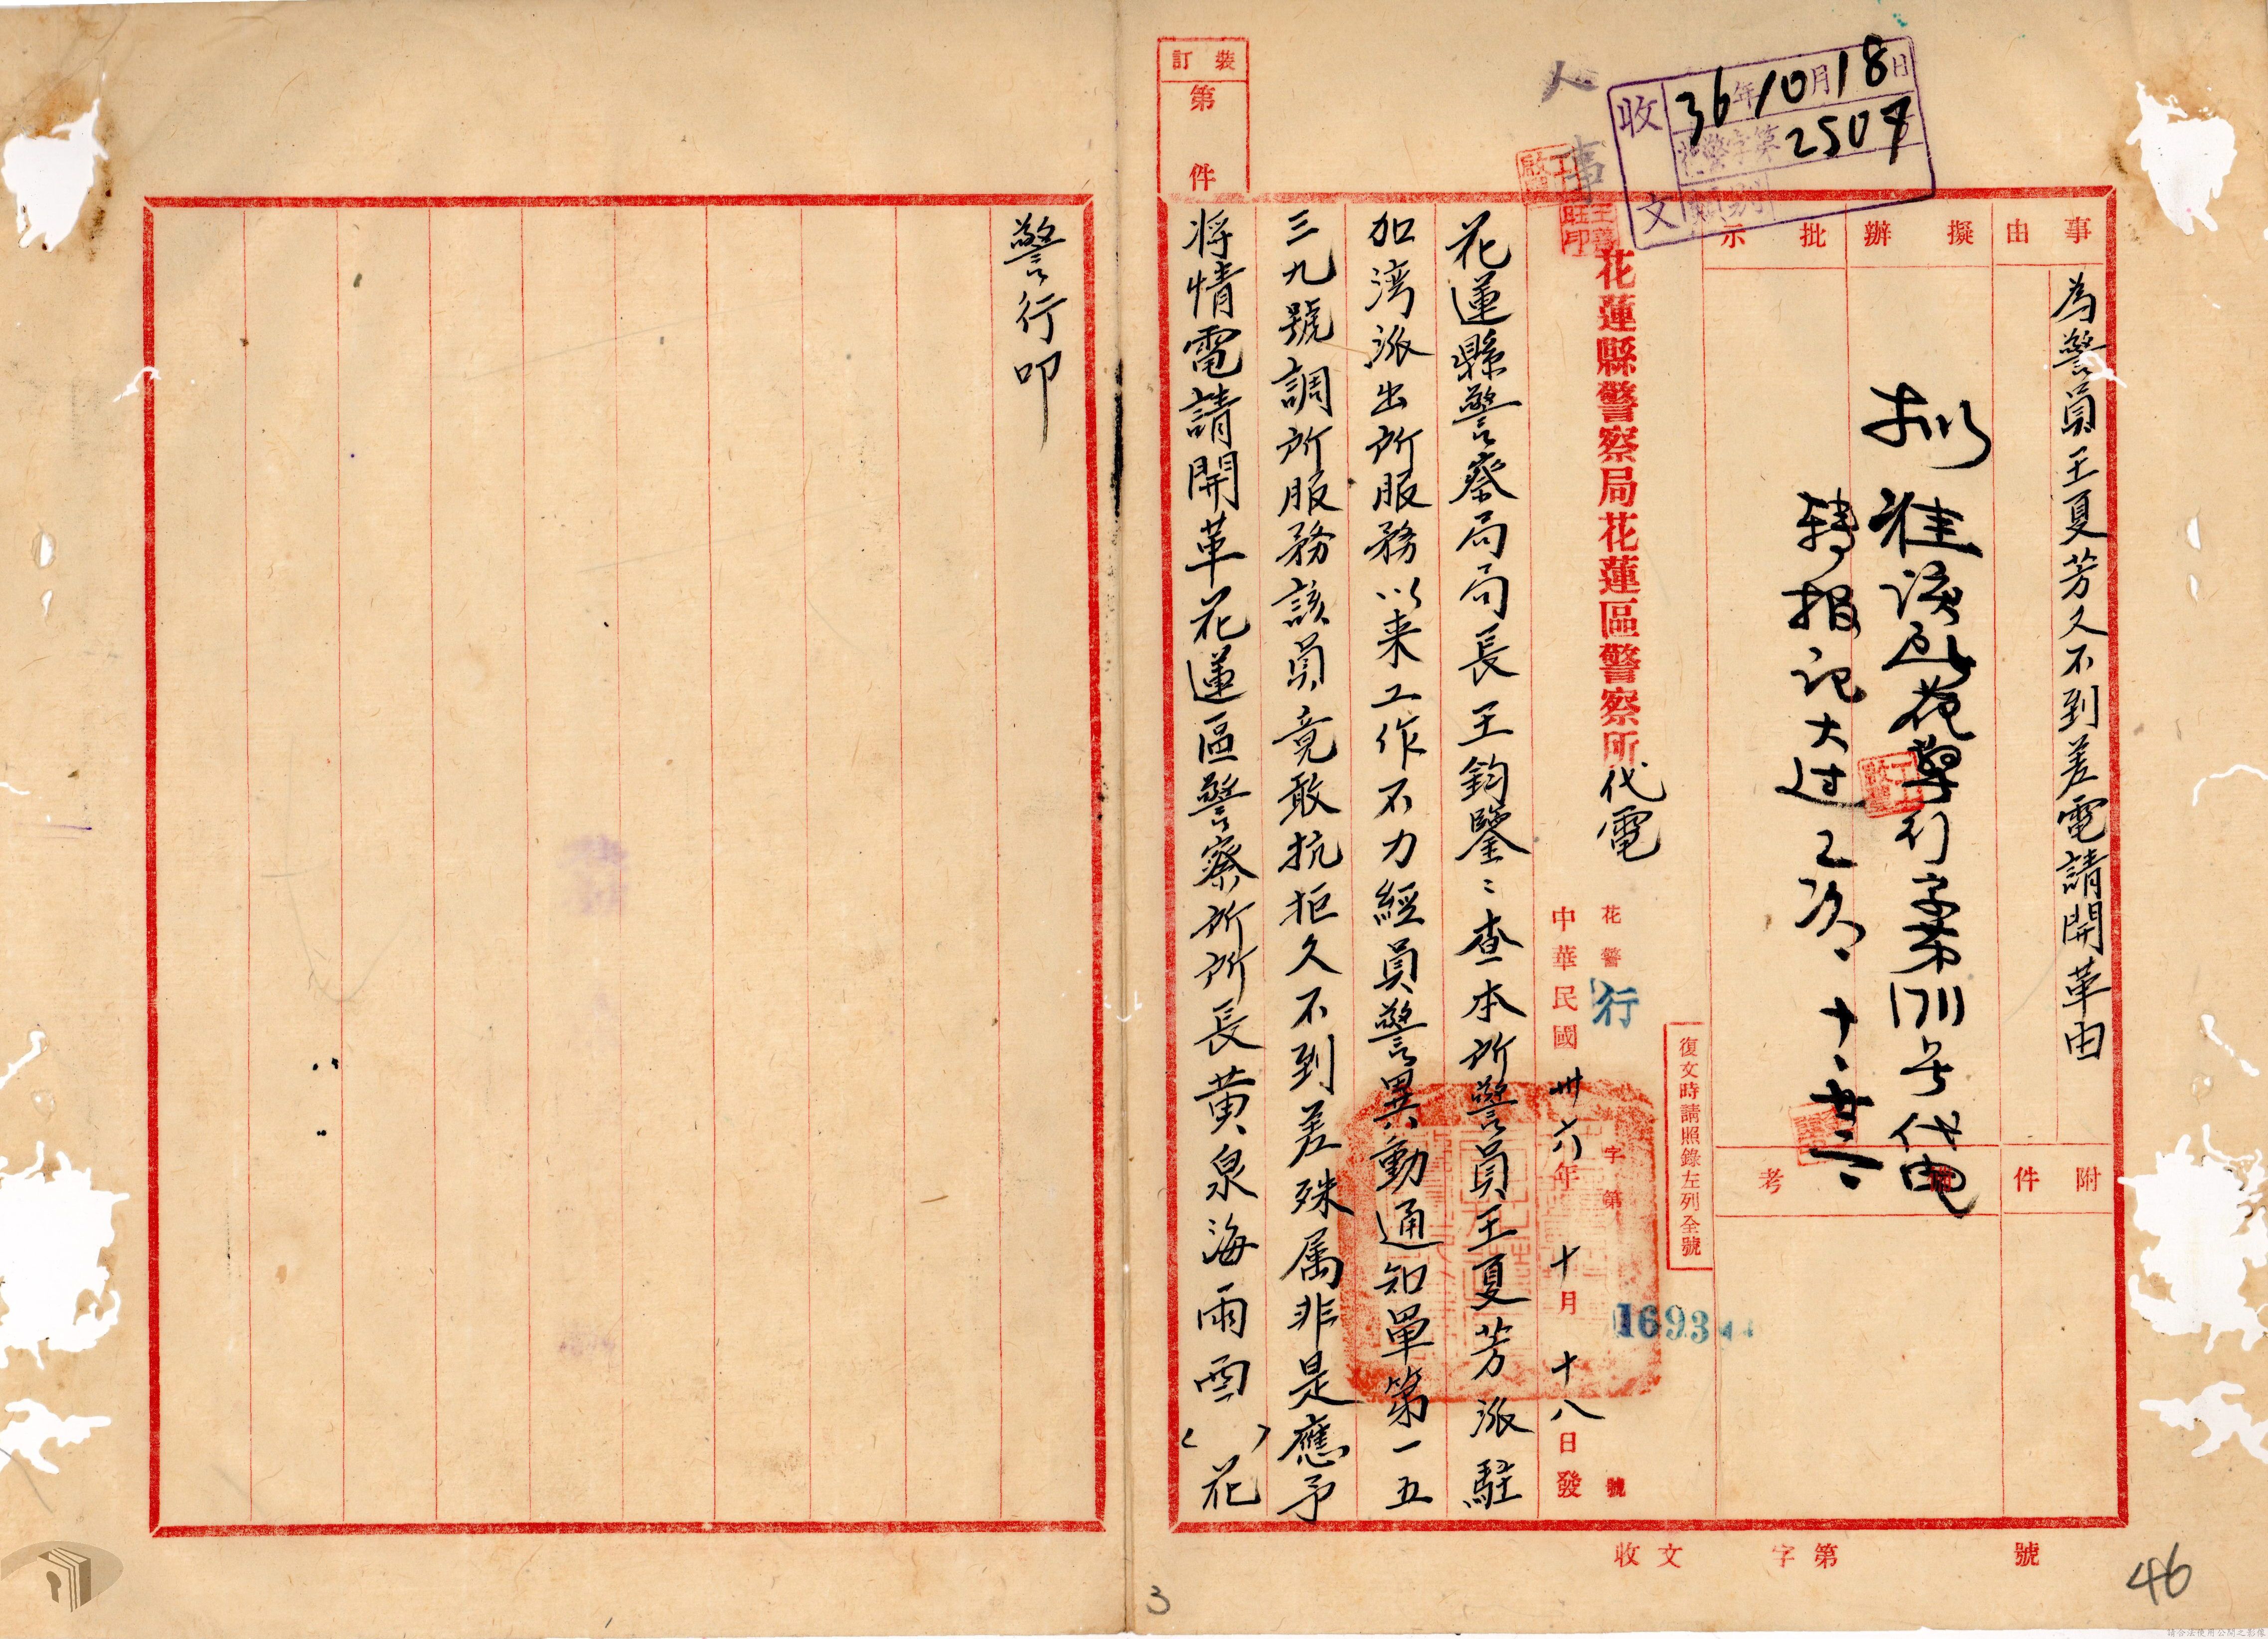 收文
36年10月18日
花警字第2507號
類別
人事
裝訂
第 件
事由
為警員王夏芳久不到差電請開革由
擬辦
批示
擬准該所花警行字第1711号代电
轉报记大过乙次 十、廿二
附件
備考
花蓮縣警察局花蓮區警察所代電
花警行字第1693號
中華民國卅六年十月十八日發
復文時請照錄左列全號
花蓮縣警察局局長王鈞鑒：查本所警員王夏芳派駐
加湾派出所服務以来工作不力經員警異動通知單第一五
三九號調所服務該員竟敢抗拒久不到差殊属非是應予
將情電請開革花蓮區警察所所長黄泉海雨雪（ ）花
警行叩
收文 字第 號
3
46
請合法使用公開之影像